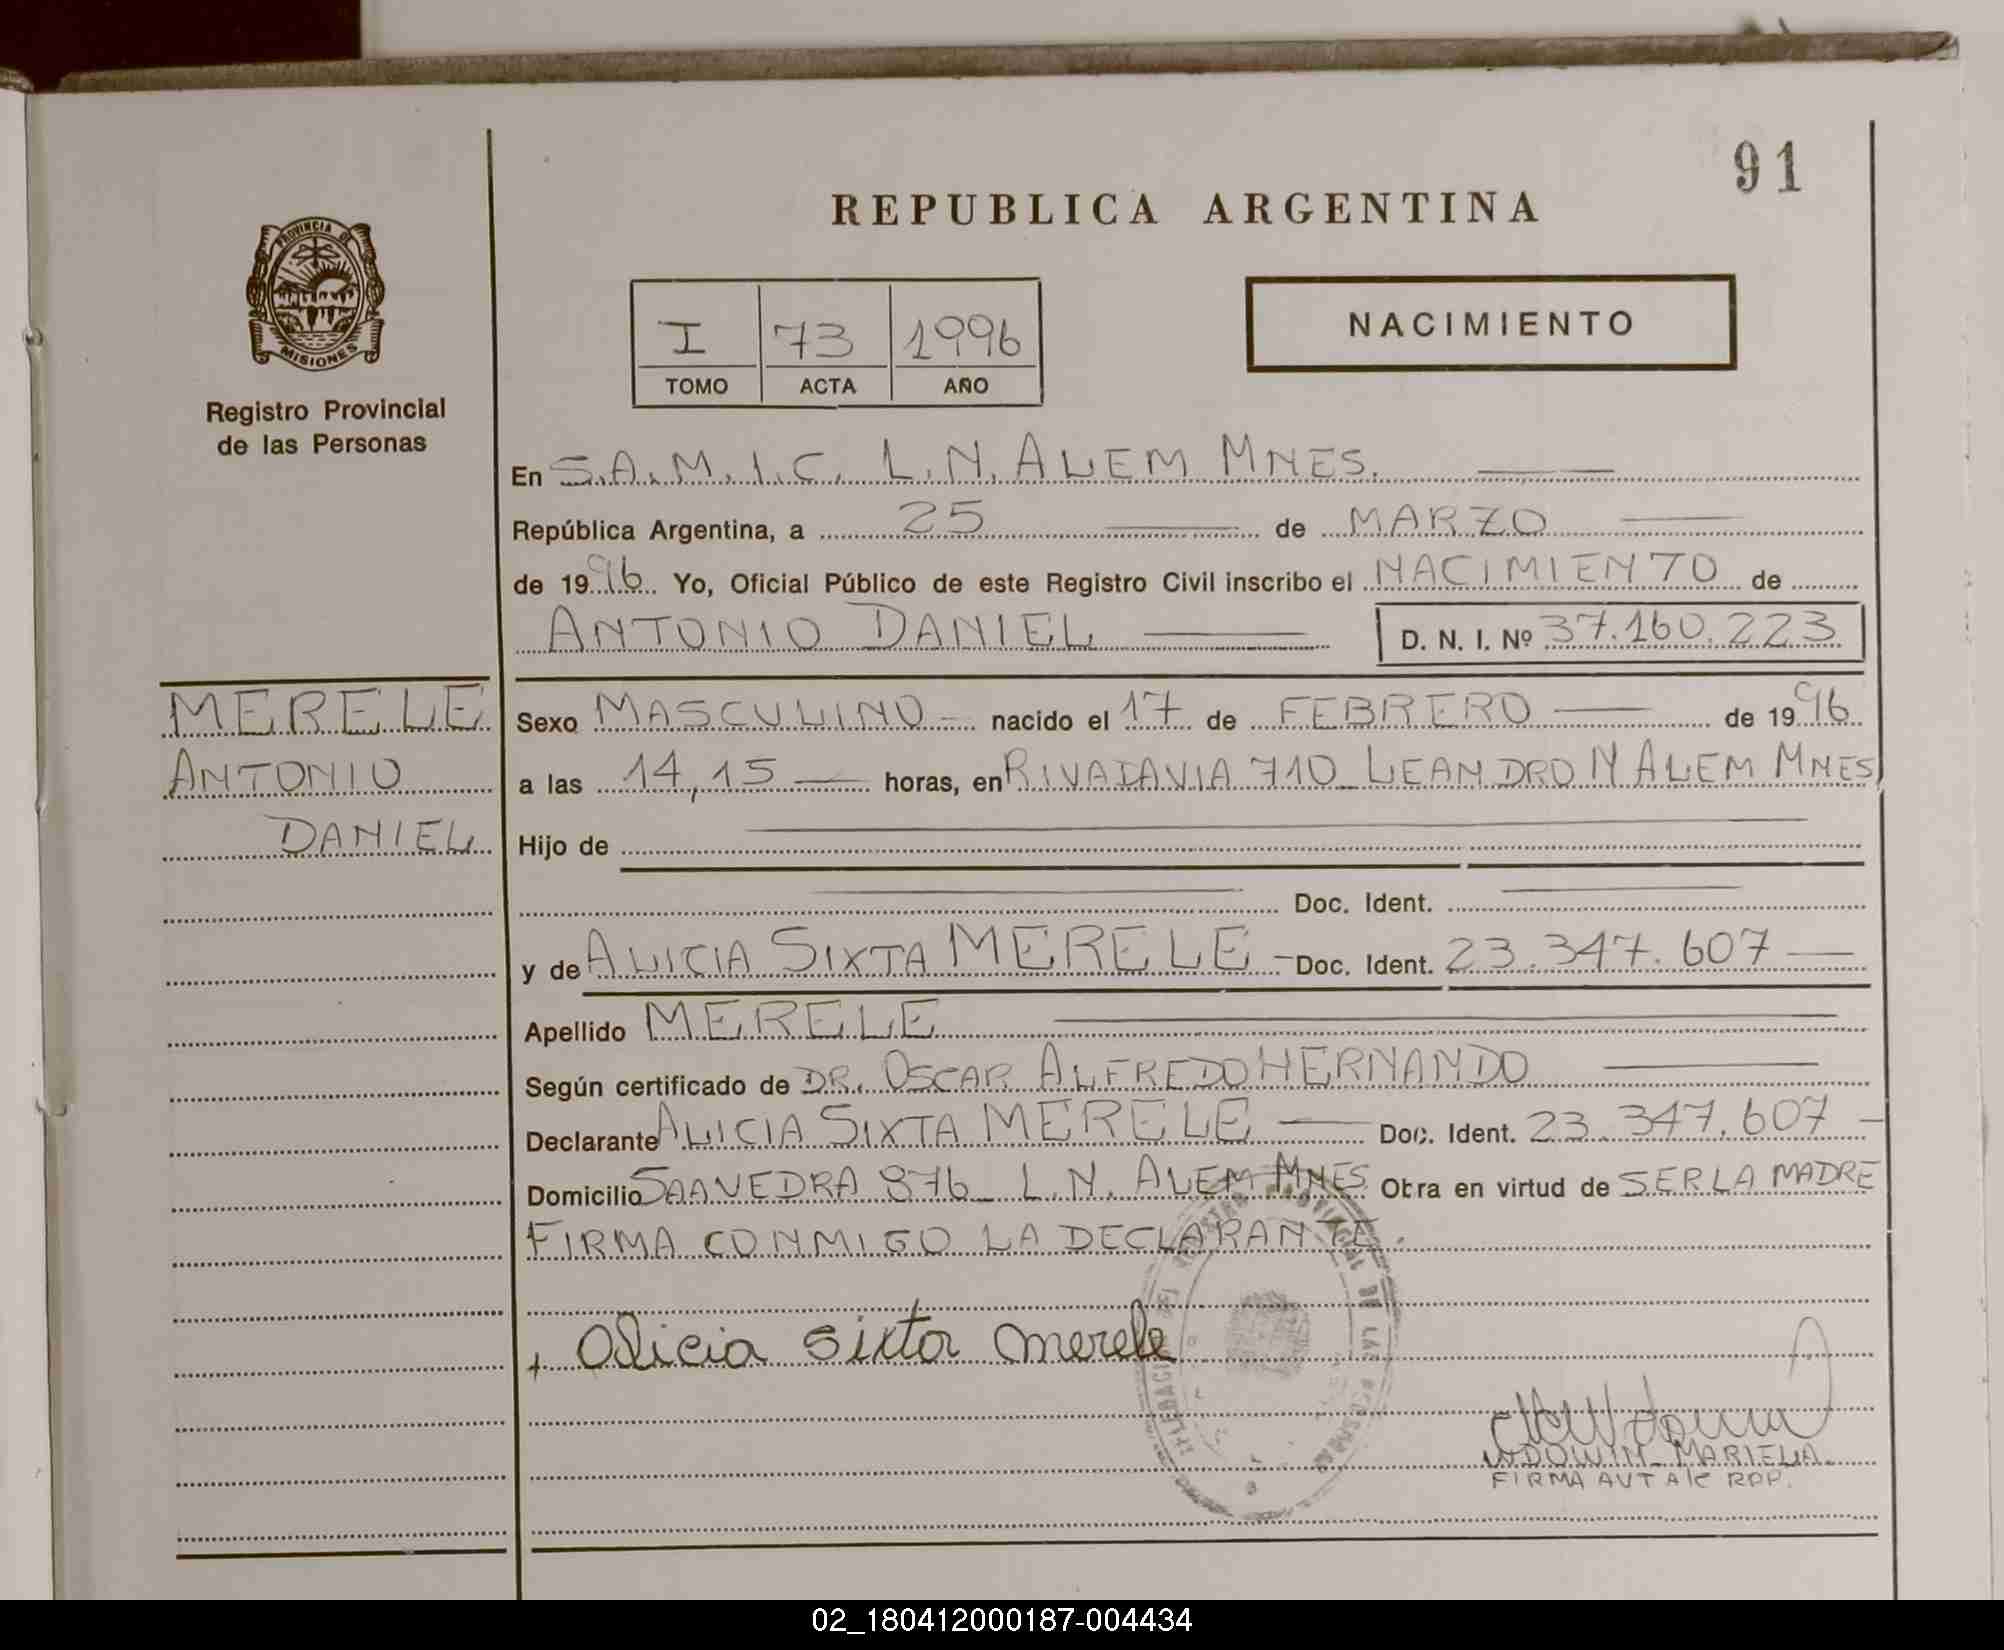 91
REPUBLICA ARGENTINA
PROVINCIA DE
MISIONES
Registro Provincial
de las Personas
I 73 1996
TOMO ACTA AÑO
NACIMIENTO
En S.A.M.I.C. L.N. ALEM MNES.
República Argentina, a 25 de MARZO
de 1996 Yo, Oficial Público de este Registro Civil inscribo el NACIMIENTO de
ANTONIO DANIEL D. N. I. Nº 37.160.223
MERELE
ANTONIO
DANIEL
Sexo MASCULINO nacido el 17 de FEBRERO de 1996
a las 14,15 horas, en RIVADAVIA 710 LEANDRO N ALEM MNES
Hijo de
Doc. Ident.
y de ALICIA SIXTA MERELE Doc. Ident. 23.347.607
Apellido MERELE
Según certificado de DR. OSCAR ALFREDO HERNANDO
Declarante ALICIA SIXTA MERELE Doc. Ident. 23.347.607
Domicilio SAAVEDRA 876 L.N. ALEM MNES Obra en virtud de SER LA MADRE
FIRMA CONMIGO LA DECLARANTE.
Alicia Sixta merele
MARIELA
FIRMA AUT A/C RPP.
02_180412000187-004434